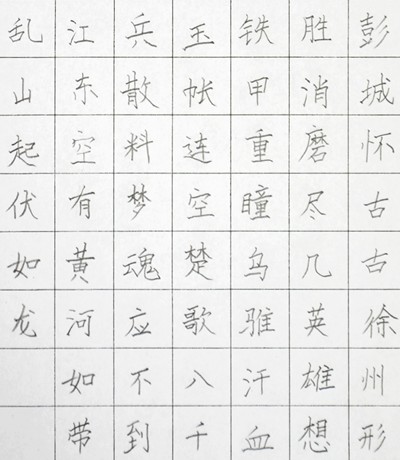 彭城怀古古徐州形
胜消磨尽几英雄想
铁甲重瞳乌骓汗血
玉帐连空楚歌八千
兵散料梦魂应不到
江东空有黄河如带
乱山起伏如龙